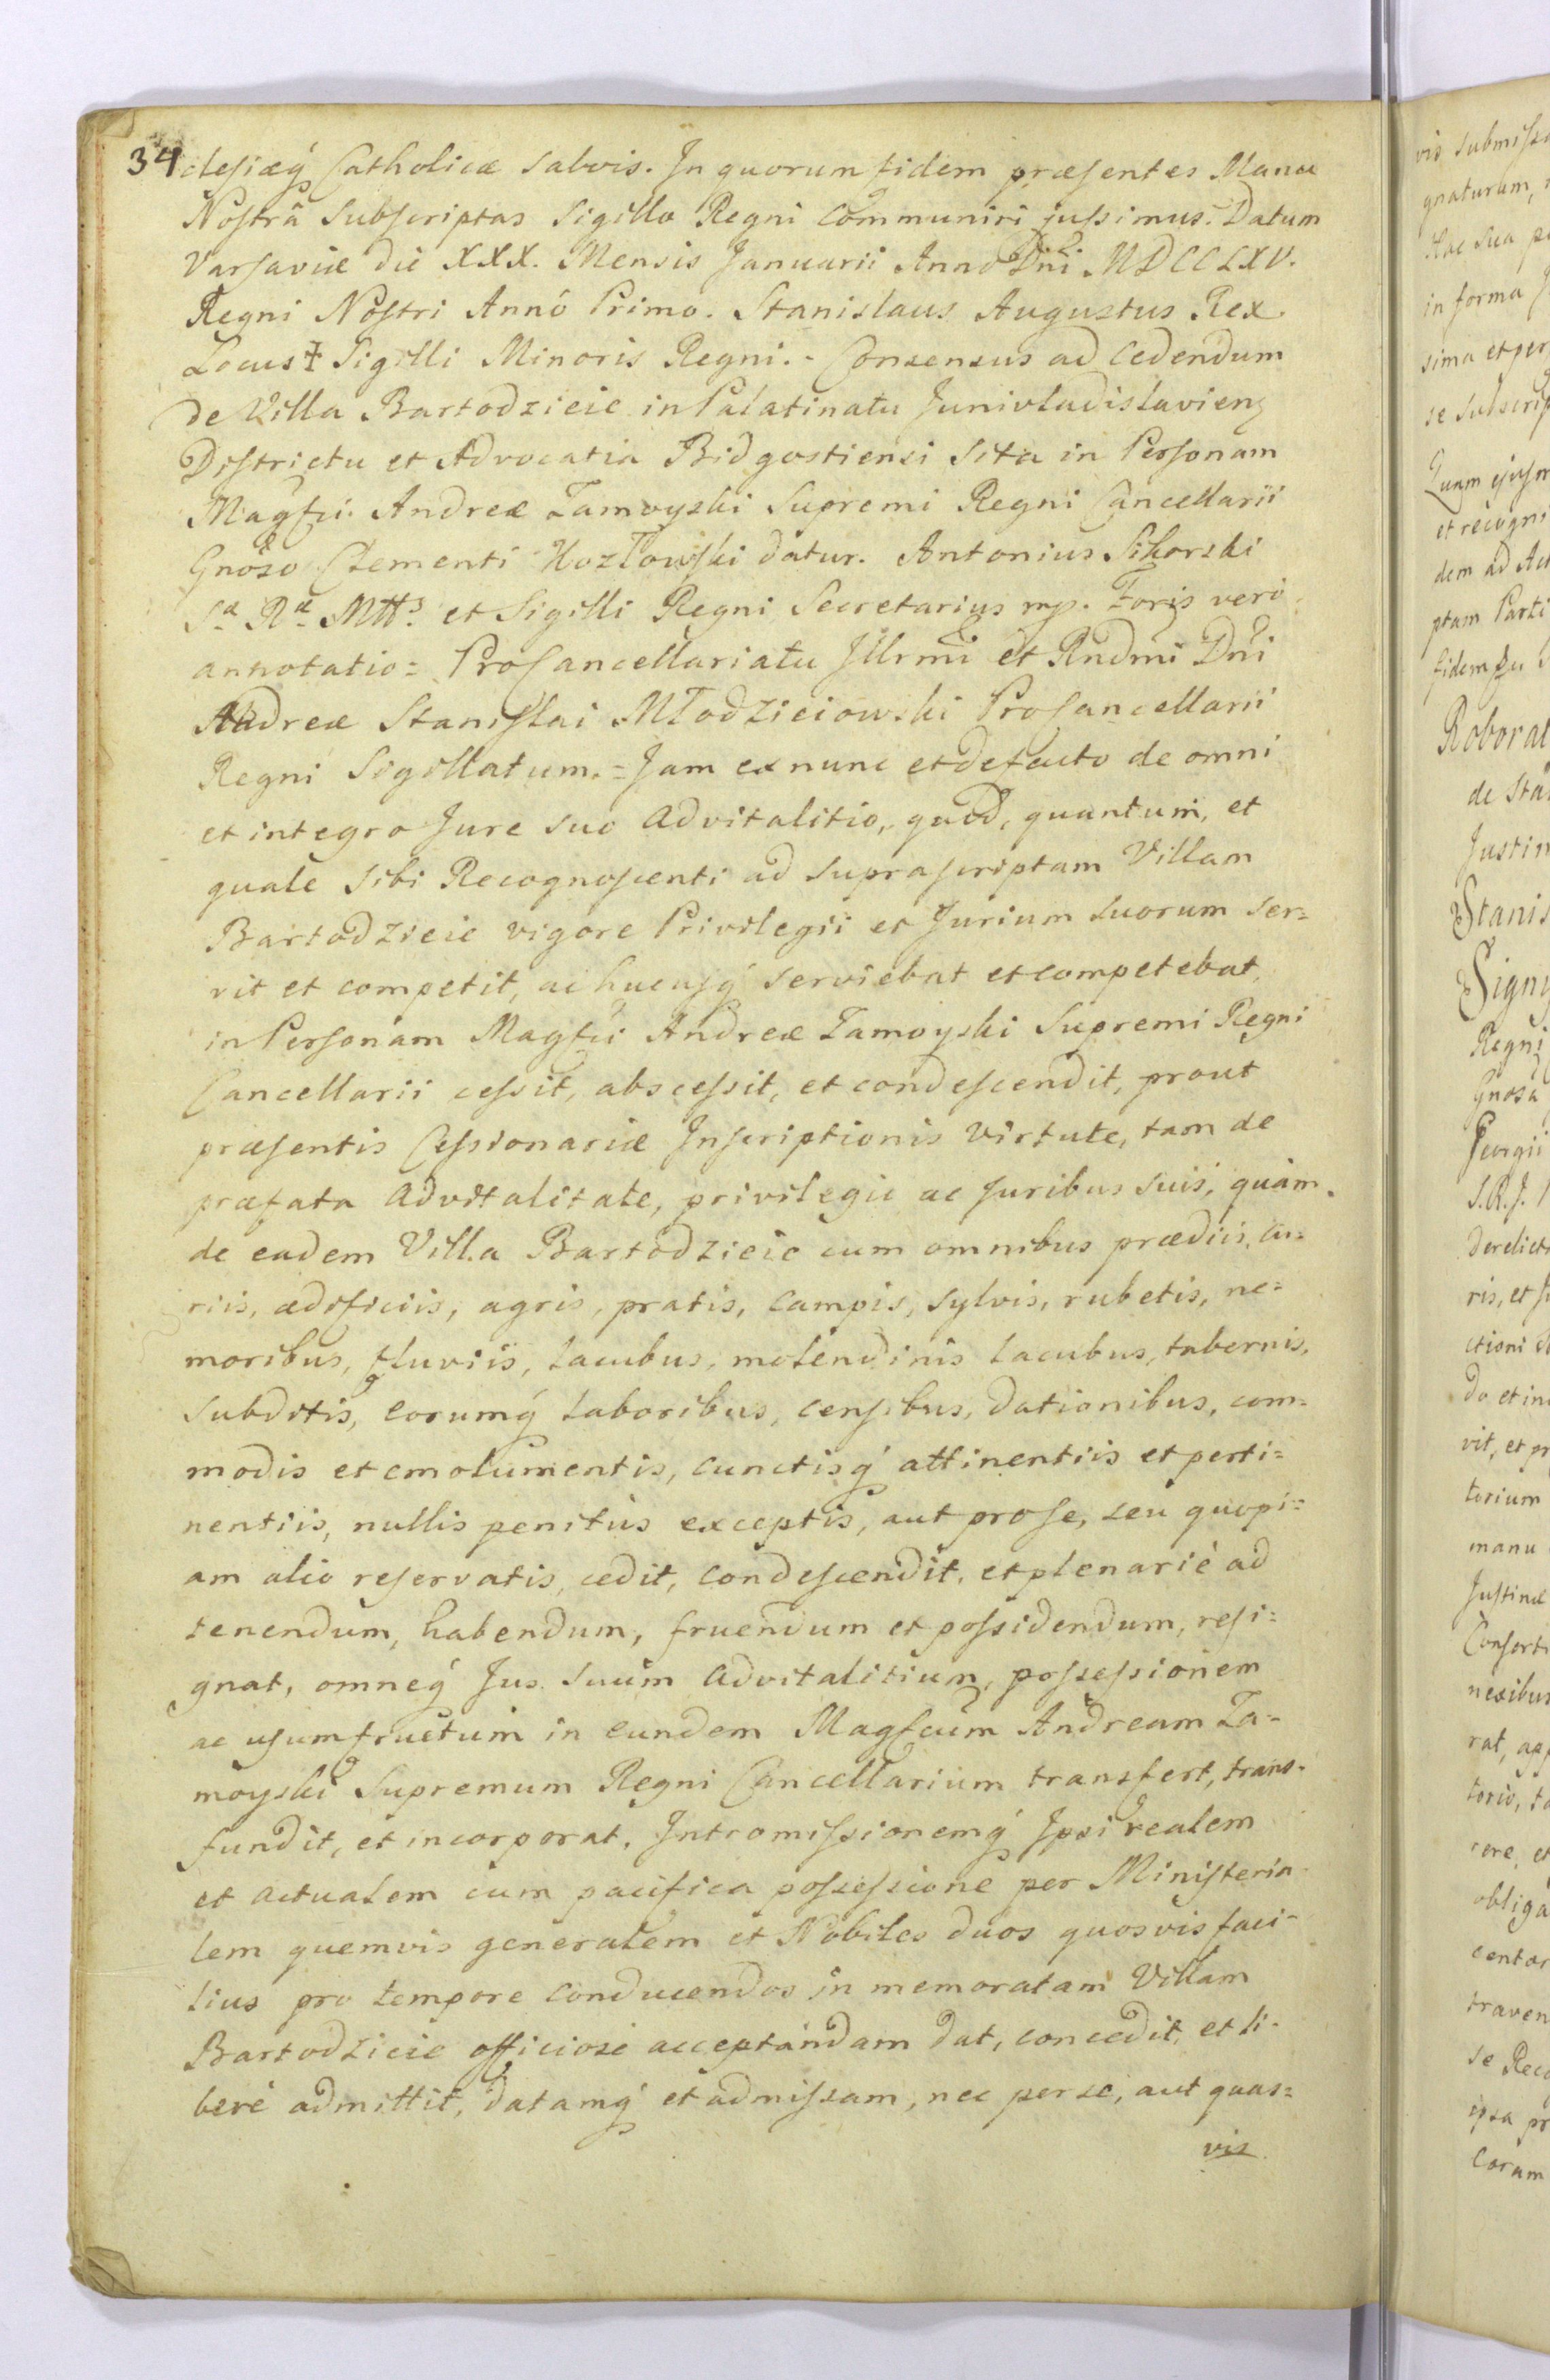 34
clesiæq́ Catholicæ salvis. In quorum fidem præsentes Manu
Nostrâ Subscriptas Sigillo Regni Communiri jussimus. Datum
Varsaviæ die XXX. Mensis Januarii Anno Dñi MDCCLXV.
Regni Nostri Annó Primo. Stanislaus Augustus Rex.
Locus ‡ Sigilli Minoris Regni. - Consensus ad cedendum
de Villa Bartodzieie in Palatinatu Junivladislavieng
Districtu et Advocatia Bidgostiensi Sita in Personam
Magfci Andreæ Zamoyski Supremi Regni Cancellarii
Gnoso Clementi Kozłowski datur. Antonius Sikorski
Sæ Ræ Mttis et Sigilli Regni Secretarius mp. Foris vero
annotatio = Procancellariatu Illrmi et Rndmi Dñi
Andreæ Stanislai Młodzieiowski Procancellarii
Regni Sigillatum. = Jam ex nunc et de facto de omni
et integro Jure suo advitalitio, quod, quantum, et
quale sibi Recognoscenti ad suprascriptam Villam
Bartodzieie vigore Privilegii et Jurium suorum ser=
vit et competit, ac hucusq́ serviebat et competebat,
in Personam Magfci Andreæ Zamoyski Supremi Regni
Cancellarii cessit, abscessit, et condescendit, prout
præsentis Cessionariæ Inscriptionis virtute, tam de
præfata advitalitate, privilegio ac Juribus suis, quàm
de eadem Villa Bartodzieie cum omnibus prædiis, cu=
riis, ædificiis, agris, pratis, campis, sylvis, rubetis, ne=
moribus, fluviis, lacubus, molendinis lacubus, tabernis,
subditis, eorumq́ laboribus, censibus, dationibus, com=
modis et emolumentis, cunctisq́ attinentiis et perti=
nentiis, nullis penitùs exceptis, aut pro se, seu quopi=
am alio reservatis, cedit, condescendit, et plenariè ad
tenendum, habendum, fruendum et possidendum, resi=
gnat, omneq́ Jus suum advitalitium, possessionem
ac usumfructum in eundem Magfcum Andream Za=
moyski Supremum Regni Cancellarium transfert, trans=
fundit, et incorporat, Intromissionemq́ Ipsi realem
et actualem cum pacifica possessione per Ministeria=
lem quemvis generalem et Nobiles duos quosvis faci=
lius pro tempore conducendos in memoratam Villam
Bartodzieie officiose acceptandam dat, concedit, et li=
berè admittit, datamq́ et admissam, nec per se, aut quas=
vis
vis submiss
gnaturam,
Hac sua p
in forma
sima et per
se subscrip
Quam ejusm
et recogni
dem ad Act
ptam Parti
Roborat
de Sta
Justin
Stanis
Regni
Gnosa
Georgii
S.R.J.
derelict
ris, et
ctioni
do et in
vit, et pr
torium
manu
Justinæ
Consort
nexibus
rat, app
torio, ta
obliga
centor
traven
se Reco
ipsa pr
Coram